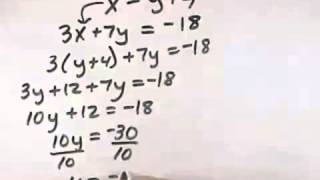 x = y + 4
3x + 7y = -18
3(y+4) + 7y = -18
3y + 12 + 7y = -18
10y + 12 = -18
10y = -30
10 10
y = -